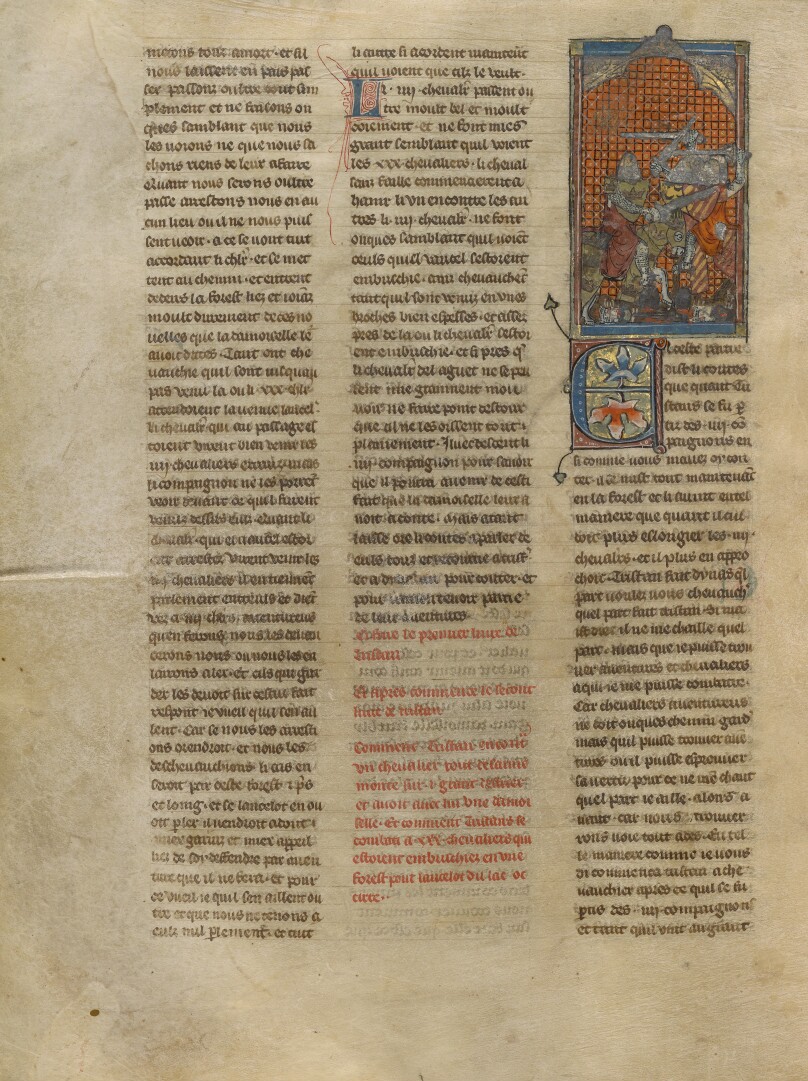 metons tout a mort · et sil
nous laissent en pais pas
ser passons oultre tout sim
plement et ne faisons on
ques samblant que nous
les voions ne que nous sa
chons riens de leur afaire
Quant nous serons oultre
passe arestons nous en au
cun lieu ou il ne nous puis
sent veoir · a ce se vont tuit
acordant li chlr · et se met
tent au chemin · et entrent
dedens la forest liez et ioiāt
moult durement de ces no
uelles que la damoiselle le
auoit dites · Tant ont che
uauchie quil sont iusquau
pas venu la ou li · xxx · chlr
atendoient la venue lancel ·
li cheualr qui au passage es
toient virent bien venir les
iiij cheualiers errans mais
li compaignon ne les porrent
veoir deuant ce quil furent
venus dessus eux
cheualr · qui
arrestez virent venir les
iiij cheualiers il en tiennent
parlement entreuls et dient
vee a · iiij · chlrs · auentureus
quen ferons nous les deliue
rerons nous ou nous les en
lairons aler · et cils que gar
der les deuoit sur cestui fait
respont ie vueil quil sen ail
lent · Car se nous les aresti
ons orendroit · et nous les
descheuauchions li cris en
seroit par ceste forest · et pres
et loing · et se lancelot en ou
oit pler il vendroit adont
mier garnis et mier appareil
liez de soy deffendre par auen
ture que il ne sera · et pour
ce vueil ie quil sen aillent ou
tre et que nous ne tenons a
euls nul plement · et tuit
li autre si acordent maintenāt
quil voient que cilz le veult ·
Li · iiij · cheualr passent ou
tre moult bel et moult
coiement · et ne font mies
grant semblant quil voient
les · xxx · cheualiers · li cheual
sans faille commencerent a
hanir li vn encontre les au
tres li · iiij · cheualr · ne font
onques samblant quil voient
ceuls qui el vaucel sestoient
embuschie · ains cheuauchent
tant quil sont venu en vnes
broches bien espesses · et assez
pres de la ou li cheualr sestoi
ent embuschie · et si pres q'
li cheualr del aguet ne se peu
lent mie gramment mou
voir ne faire point destour
que cil ne les oissent tout
plainement · Illuec descent li
iiij · compaignon pour sauoir
que il porra auenir de cestui
fait que la damoiselle leur a
uoit aconte · Mais atant
laisse ore li contes a parler de
euls touz et retourne a trist'
et a dynadan pour conter · et
pour ramenteuoir partie
de leur auentures ·
Cy fine le premier liure de
tristan
Et apres commence le secont
liure de tristan
Comment Tristan encontre
vn cheualier tout desarme
monte sur · i · grant destrier
et auoit auec lui vne damoi
selle · Et comment Tristans se
combati a · xxx · cheualiers qui
estoient embuschiez en vne
forest pour lancelot du lac oc
cirre ·
En ceste partie
dist li contes
que quant Tri
stans se fu p
tis des · iiij · cō
paignons en
si comme vous mauez oy con
ter · il se mist tout maintenāt
en la forest et li auint en tel
maniere que quant il cui
doit plus eslongier les · iiij ·
cheualrs · et il plus en appro
choit · Tristan fait dynas q̄l
part voulez vous cheuauch'
quel part fait tristan · Si ma
ist diex il ne me chaille quel
part · mais que ie puisse trou
uer auentures et cheualiers
a qui ie me puisse combatre ·
Car cheualiers auentureus
ne doit onques chemin gard'
mais quil puisse trouuer auē
tures ou il puisse esprouuer
sa vertu · pour ce ne me chaut
quel part ie aille · alons a
uant · car nous trouuer
rons voie tout ades · En tel
le maniere comme ie vous
di commenca tristan a che
uauchier apres ce quil se fu
ptis des · iiij · compaignons
et tant quil vint au quart